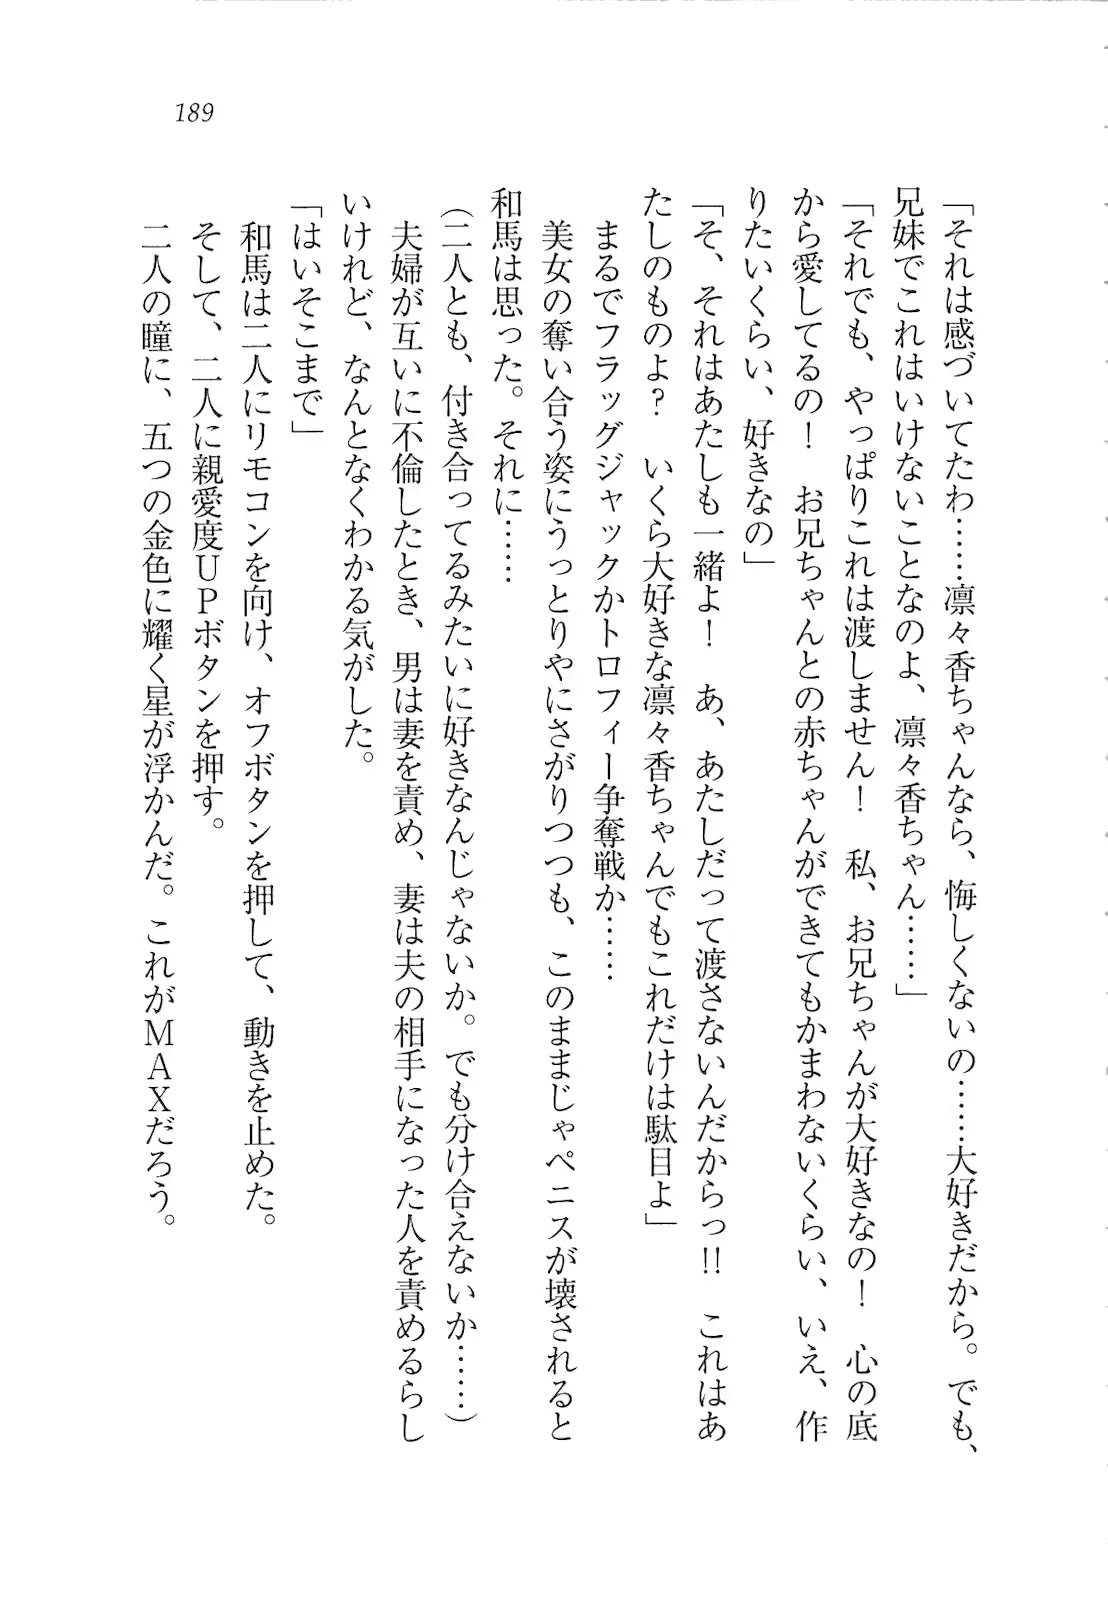 189
「それは感づいてたわ……凛々香ちゃんなら、悔しくないの……大好きだから。でも、
兄妹でこれはいけないことなのよ、凛々香ちゃん……」
「それでも、やっぱりこれは渡しません！　私、お兄ちゃんが大好きなの！　心の底
から愛してるの！　お兄ちゃんとの赤ちゃんができてもかまわないくらい、いえ、作
りたいくらい、好きなの」
「そ、それはあたしも一緒よ！　あ、あたしだって渡さないんだからっ!!　これはあ
たしのものよ？　いくら大好きな凛々香ちゃんでもこれだけは駄目よ」
まるでフラッグジャックかトロフィー争奪戦か……
美女の奪い合う姿にうっとりやにさがりつつも、このままじゃペニスが壊されると
和馬は思った。それに……
（二人とも、付き合ってるみたいに好きなんじゃないか。でも分け合えないか……）
夫婦が互いに不倫したとき、男は妻を責め、妻は夫の相手になった人を責めるらし
いけれど、なんとなくわかる気がした。
「はいそこまで」
和馬は二人にリモコンを向け、オフボタンを押して、動きを止めた。
そして、二人に親愛度ＵＰボタンを押す。
二人の瞳に、五つの金色に耀く星が浮かんだ。これがＭＡＸだろう。